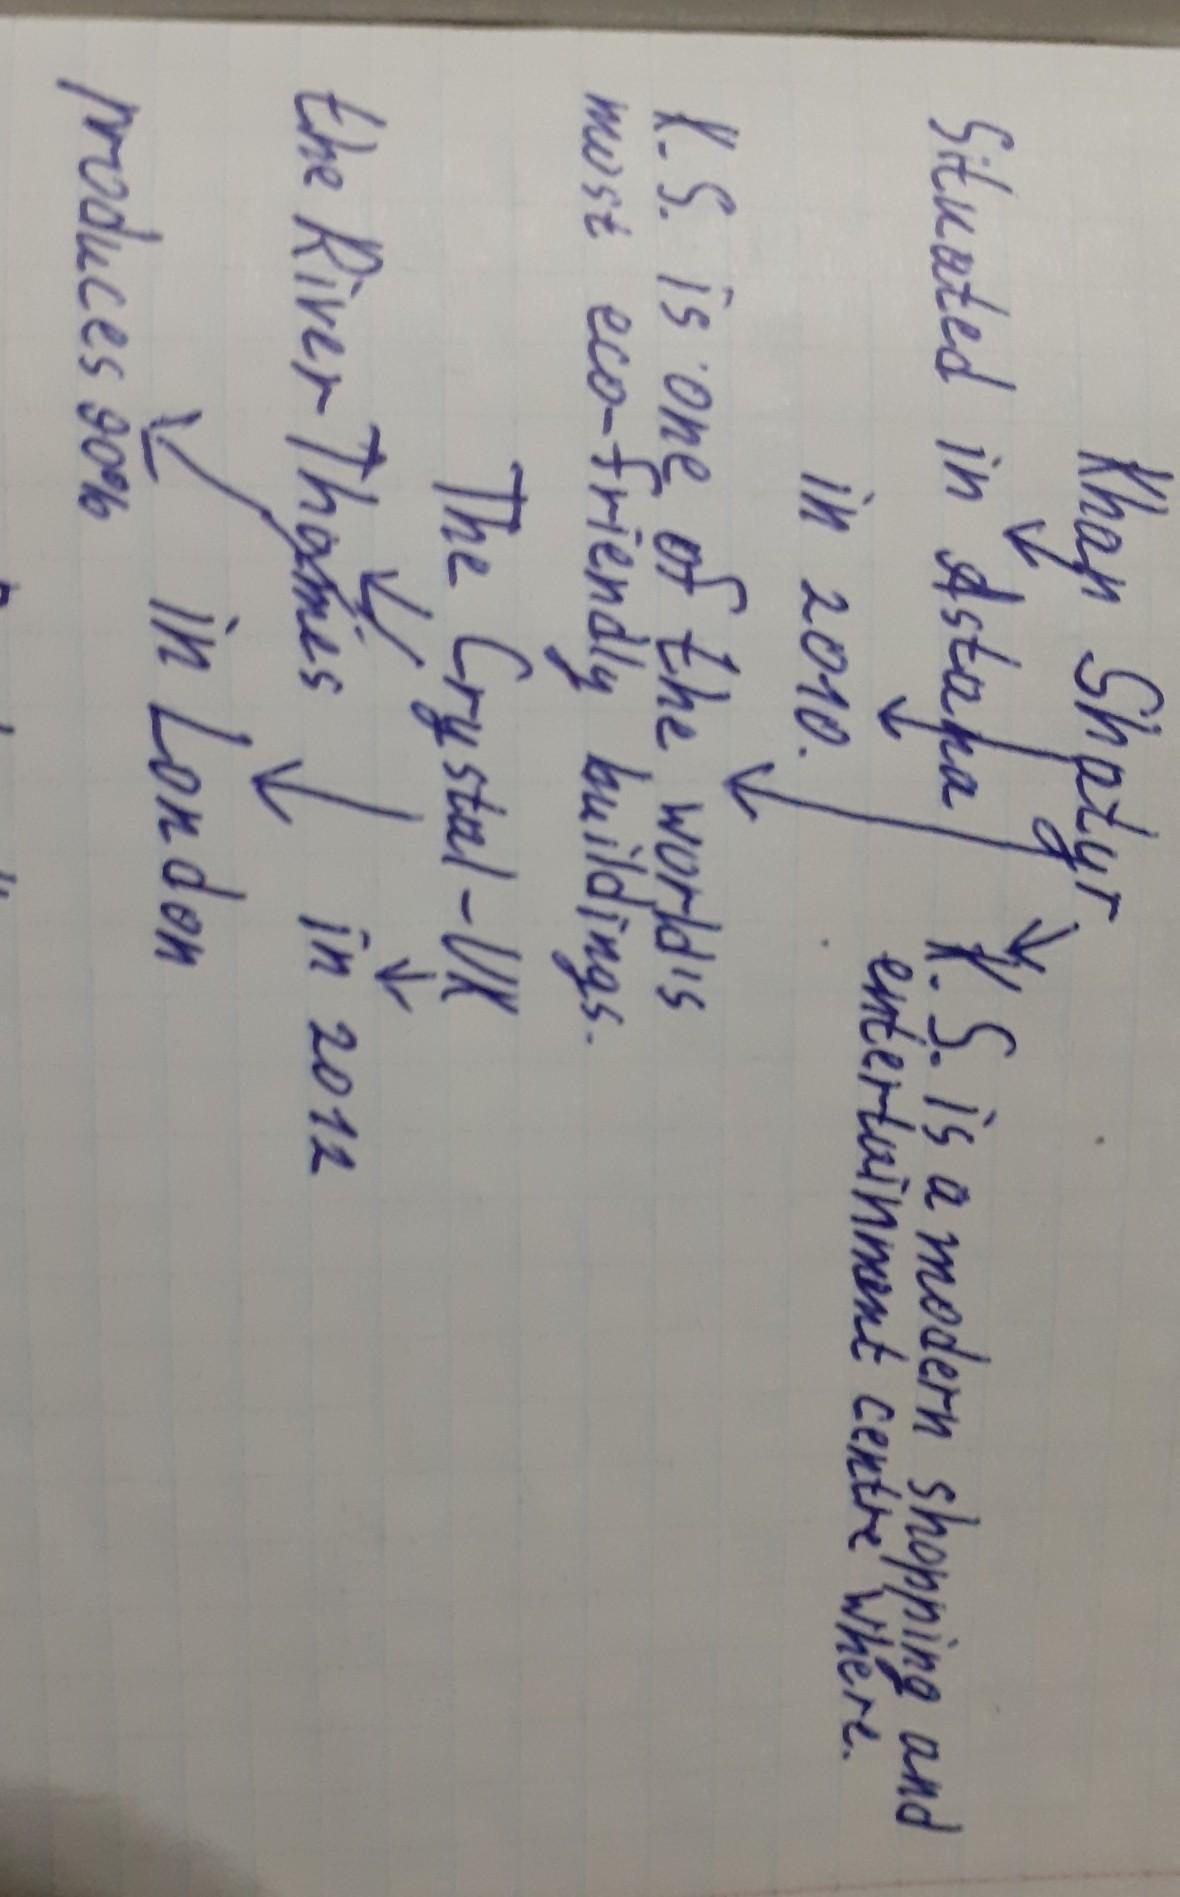 Khan Shatyr
Situated in Astana
K. S. is a modern shopping and
entertainment centre where.
in 2010.
K. S. is one of the world's
most eco-friendly buildings.
The Crystal-UK
the River Thames
in 2012
in London
produces 90%